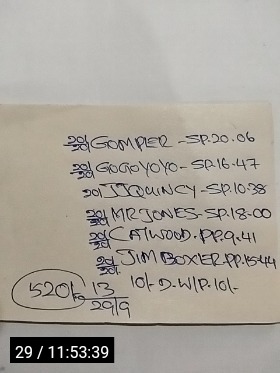 20/20 GOMPIER - SP.20.06
20/20 GOGOYOYO - SP.16-47
20/ JJQUINCY - SP.10.38
20/20 MR JONES - SP.18-00
20/20 CATWOOD. PP.9.41
20/20 JIM BOXER. PP.15-44
10/- D. W/P. 10/-
520/- 13
29/9
29 / 11:53:39